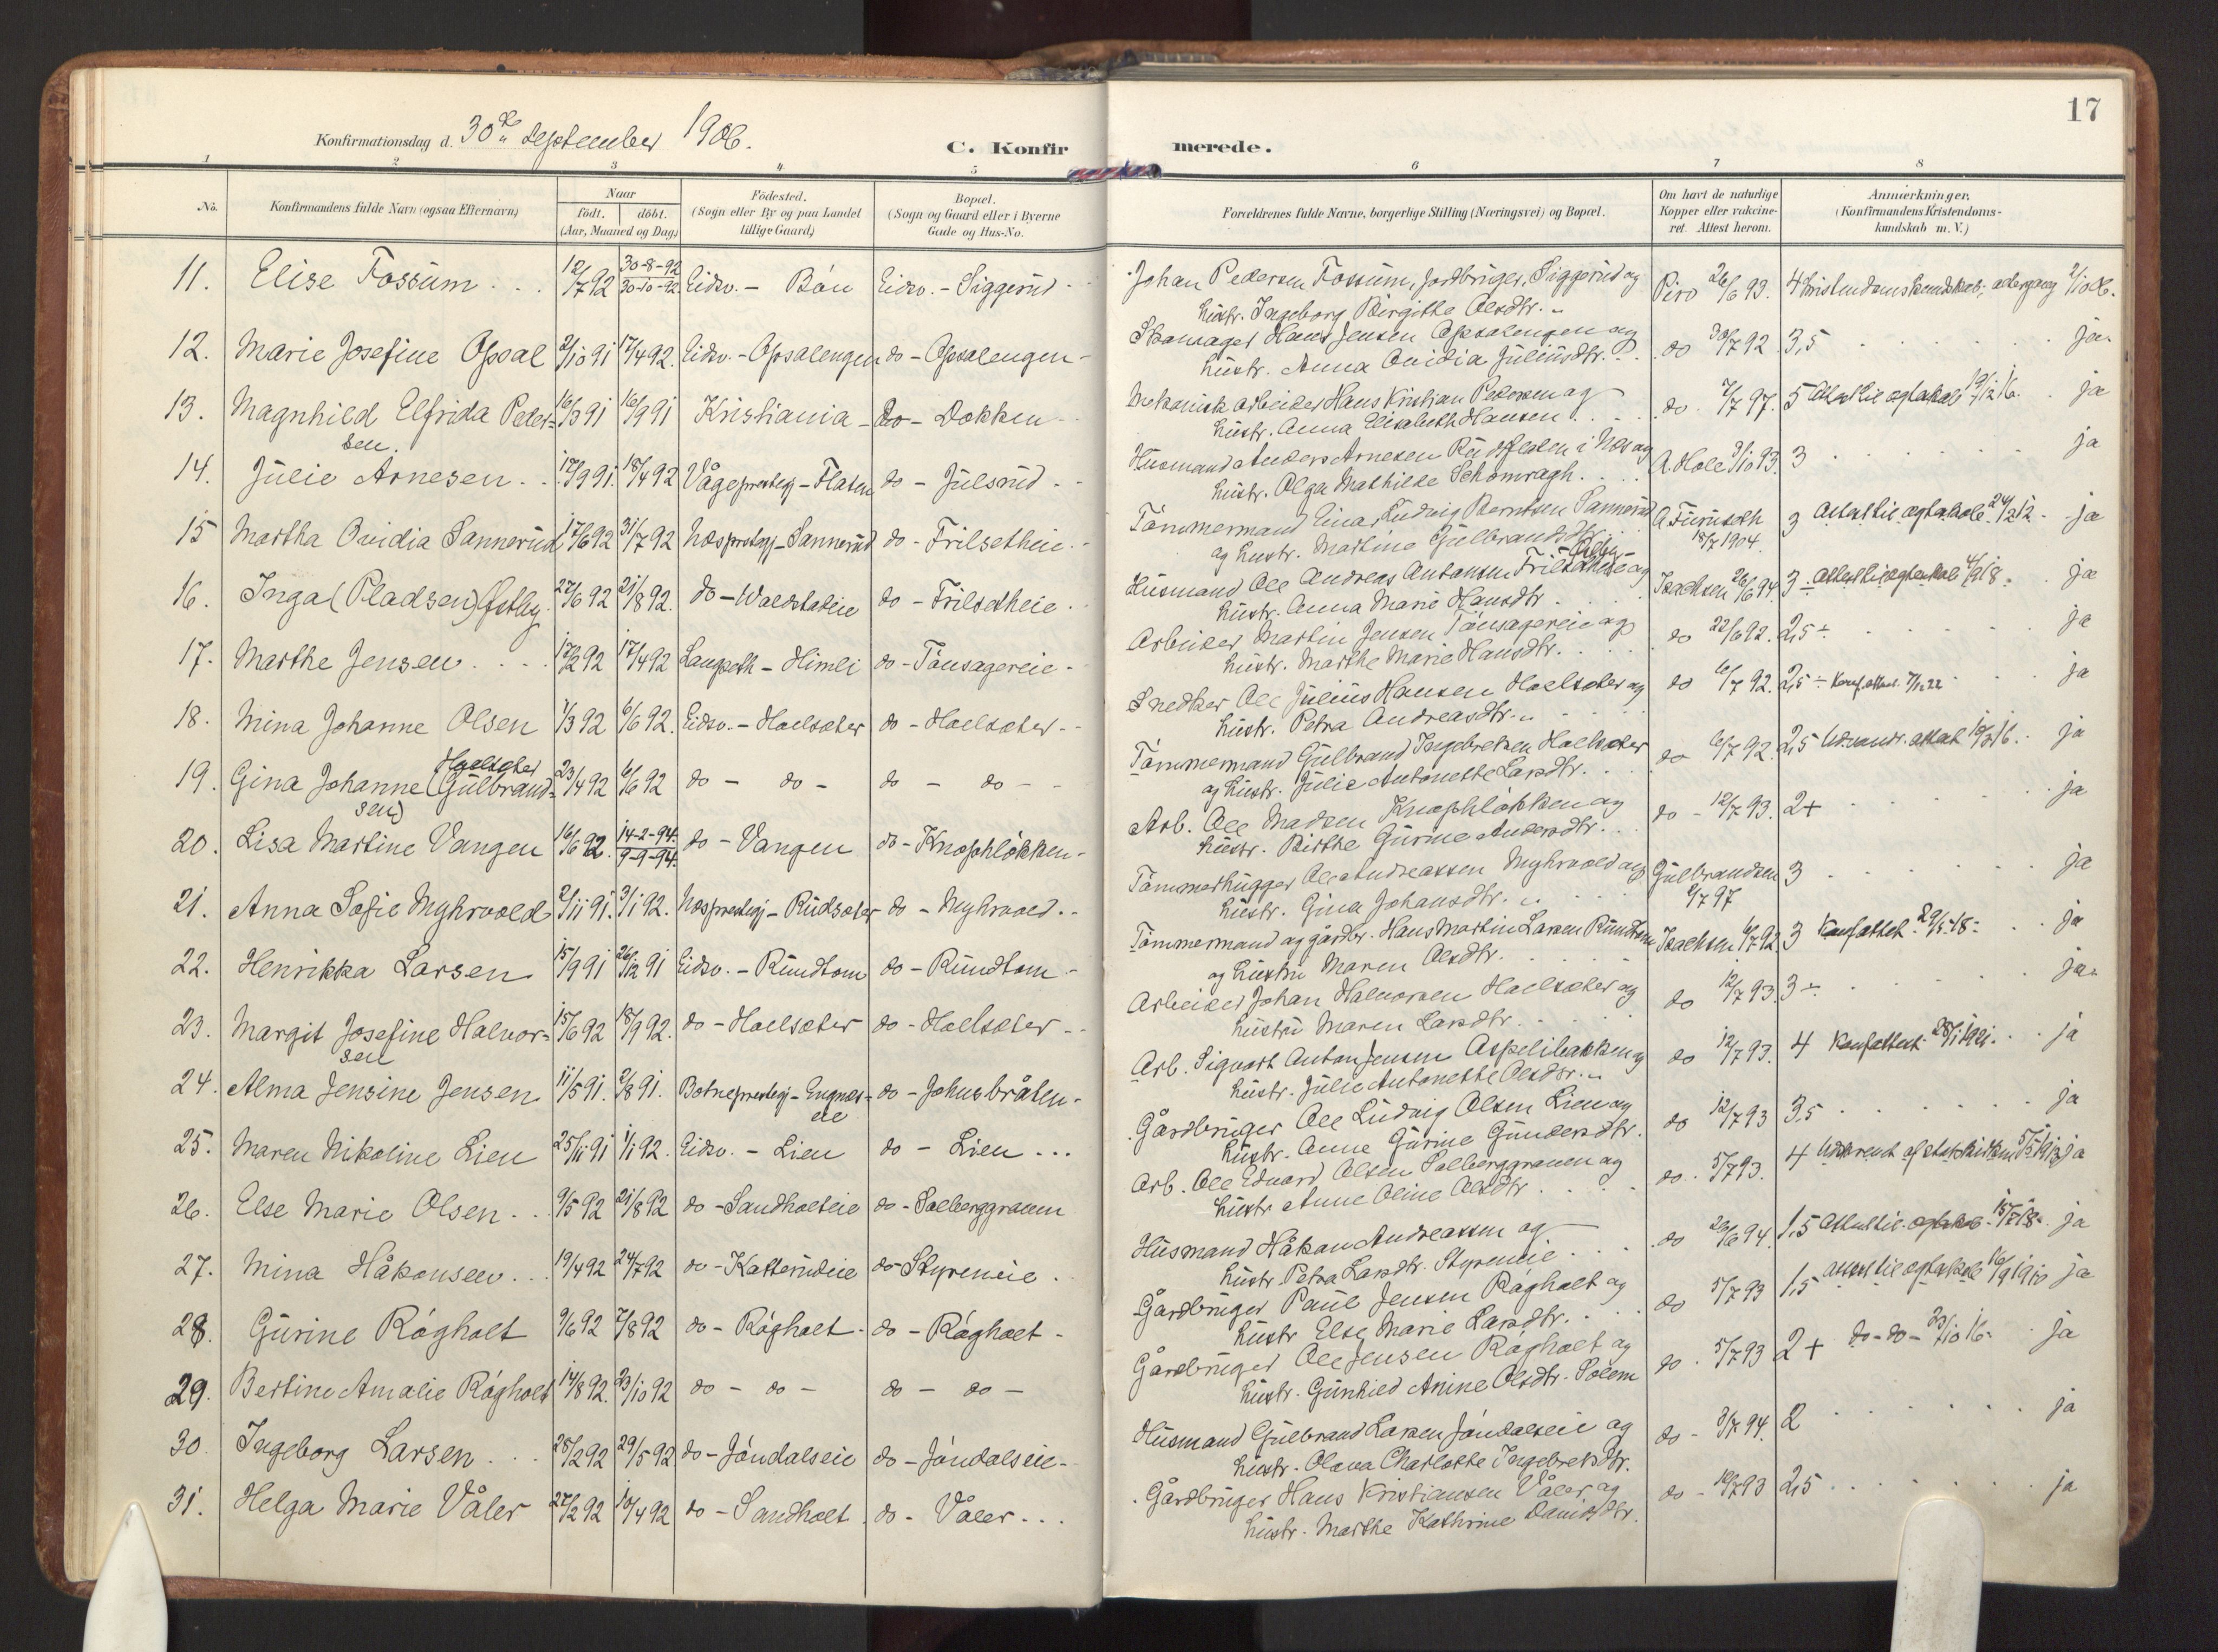 17
Konfirmationsdag d. 30 September 1906.
C. Konfirmerede.
1 2 3 4 5 6 7 8
No.
Konfirmandens fulde Navn (ogsaa Efternavn)
Naar
födt. döbt.
(Aar, Maaned og Dag)
Födested.
(Sogn eller By og paa Landet
tillige Gaard)
Bopæl.
(Sogn og Gaard eller i Byerne
Gade og Hus-No.
Forældrenes fulde Navne, borgerlige Stilling (Næringsvei) og Bopæl.
Om havt de naturlige
Kopper eller vakcine-
ret. Attest herom.
Anmærkninger.
(Konfirmandens Kristendoms-
kundskab m. V.)
11. Elise Fossum 12/7 92 30-8-92 Eidsv. - Bøn Eidsv. - Siggerud
30-10-92
Johan Pedersen Fossum, Jordbruger, Siggerud og Piro 26/6 93. 4 Kristendomskundskab;
hustr. Ingeborg Birgitte Olsdtr.
12. Marie Josefine Opsal 2/10 91 17/4 92. Eidsv. - Opsalengen do - Opsalengen -
Skomager Hans Jensen Opsalengen og do 30/7 92 3,5 ja
hustr. Anna Ovidia Juliusdtr.
13. Magnhild Elfrida Peder- 16/3 91 16/9 91 Kristiania - do - Dokken
sen.
Mekanisk arbeider Hans Kristian Pedersen og do. 7/7 97. 5 ja
hustr. Anna Elisabeth Hansen
14. Julie Arnesen 17/9 91. 18/4 92 Vågeprestegj - Flaten do - Julsrud
Husmand Anders Arnesen i Næs og A. Hole 3/10 93. 3 ja
hustr. Olga Mathilde
15 Martha Ovidia Sannerud 17/6 92 31/7 92 Næsprestegj - Sannerud do - Frilsetheie
Tømmermand Einar Ludvig Berntsen Sannerud A. Furuseth 3 24/2 12 - ja
og hustr. Martine Gulbrandsdtr. 18/7 1904.
16. Inga (Pladsen) Østby. 27/6 92 21/8 92. do - Waldstadeie do - Frilsetheie
Husmand Ole Andreas Antonsen Frilsetheie og Isachsen 26/6 94. 3 ja
hustr. Anna Marie Hansdtr.
17. Marthe Jensen 17/2 92 17/4 92 Langseth - Himli do - Tønsagereie -
Arbeider Martin Jensen Tønsagereie og do 22/6 92. 2,5 ÷ ja
hustr. Marthe Marie Hansdtr.
18. Mina Johanne Olsen 1/3 92 6/6 92. Eidsv. - Hoelsæter do - Hoelsæter -
Snedker Ole Julius Hansen Hoelsæter og do 6/7 92. 2,5 ÷ ja
hustr. Petra Andreasdtr.
Hoelsæter
19. Gina Johanne (Gulbrand- 23/4 92 6/6 92 do - do - do - do -
sen)
Tømmermand Gulbrand Ingebretsen Hoelsæter do 6/7 92. 2,5 ja
og hustr. Julie Antonette Larsdtr.
20. Lisa Martine Vangen 16/6 92. 14-2-94. do - Vangen do - Knophløkken -
9-9-94.
Arb. Ole Madsen Knophløkken og do - 12/7 93. 2+ ja
hustr. Birthe Gurine Andersdtr.
21. Anna Sofie Myhrvold 2/11 91. 3/1 92. Næsprestegj - Rudsæter do - Myhrvold.
Tømmerhugger Ole Andreassen Myhrvold og Gulbrandsen 3 ja
hustr. Gina Johansdtr. 2/7 97
22. Henrikka Larsen 15/9 91 26/12 91 Eidsv. - Rundtom do - Rundtom -
Tømmermand og gårdbr. Hans Martin Larsen Rundtom Isachsen 6/7 92 3 Konfattest ja
og hustru Maren Olsdtr.
23. Margit Josefine Halvor- 15/6 92 18/9 92. do - Hoelsæter do - Hoelsæter -
sen
Arbeider Johan Halvorsen Hoelsæter og do 12/7 93. 3 ÷ ja
hustru Maren Larsdtr.
24. Alma Jensine Jensen 11/5 91. 2/8 91. Botneprestegj - Engnæs- do - Johnsbråten -
eie
Arb. Sigvart Anton Jensen Aspelibakken og do 12/7 93. 4 Konfattest 28/1 1921. ja
hustr. Julie Antonette Olsdtr.
25. Maren Nikoline Lien 25/11 91 1/1 92. Eidsv. - Lien do - Lien
Gårdbruger Ole Ludvig Olsen Lien og do 12/7 93 3,5 ja
hustr. Anne Gurine Gundersdtr.
26. Else Marie Olsen 9/5 92 21/8 92 do - Sandholteie do - Solberggraven
Arb. Ole Edvard Olsen Solberggraven og do. 5/7 93. 4 ja
hustr Anne Oline Olsdtr
27. Mina Håkonsen 19/4 92 24/7 92 do - Katterudeie do - Styrerieie
Husmand Håkon Andreassen og do 26/6 94. 1,5 ja
hustr Petra Larsdtr.
28. Gurine Rögholt 9/6 92 7/8 92 do - Rögholt - do - Rögholt -
Gårdbruger Paul Jensen Rögholt og do 5/7 93 1,5 ja
hustr Else Marie Larsdtr.
29. Bertine Amalie Rögholt 14/8 92. 23/10 92 do - do - do - do -
Gårdbruger Ole Jensen Rögholt og do. 5/7 93 2+ do - do - 23/10 16. ja
hustr. Gunhild Anine Olsdtr. Solem
30. Ingeborg Larsen 28/2 92 29/5 92 do - Jöndalseie do - Jöndalseie -
Husmand Gulbrand Larsen Jöndalseie og do - 3/7 94. 2 ja
hustr. Olava Charlotte Ingebretsdtr.
31. Helga Marie Våler 27/2 92 10/4 92 do - Sandholt do - Våler
Gårdbruger Hans Kristiansen Våler og do - 10/7 93 2,5 ja
hustr. Marthe Kathrine Davidsdtr.